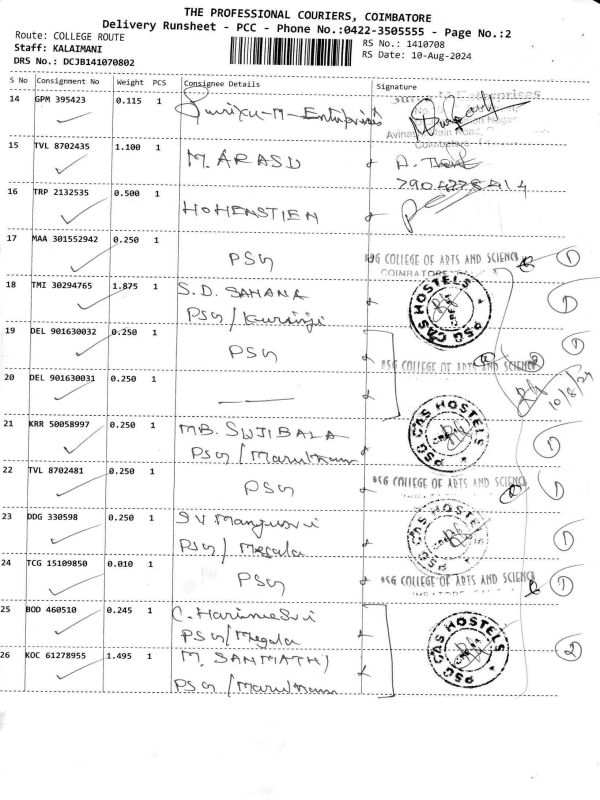 THE PROFESSIONAL COURIERS, COIMBATORE
Delivery Runsheet - PCC - Phone No.:0422-3505555 - Page No.:2
Route: COLLEGE ROUTE
RS No.: 1410708
Staff: KALAIMANI
RS Date: 10-Aug-2024
DRS No.: DCJB141070802
S No Consignment No Weight PCS Consignee Details Signature
14 GPM 395423 0.115 1
Avinashi Main Road,
15 TVL 8702435 1.100 1 M. ARASU
16 TRP 2132535 0.500 1 HOHENSTIEN
17 MAA 301552942 0.250 1 PSG PSG COLLEGE OF ARTS AND SCIENCE 1
COIMBATORE
18 TMI 30294765 1.875 1 S.D. SAHANA PSG CAS HOSTELS 1
PSG/Kurinji
19 DEL 901630032 0.250 1 PSG PSG COLLEGE OF ARTS AND SCIENCE 1
20 DEL 901630031 0.250 1 10/8/24
21 KRR 50058997 0.250 1 MB. SUJIBALA PSG CAS HOSTELS 1
PSG/Marutham
22 TVL 8702481 0.250 1 PSG PSG COLLEGE OF ARTS AND SCIENCE 1
23 DDG 330598 0.250 1 PSG CAS HOSTELS 1
PSG/Megala
24 TCG 15109850 0.010 1 PSG PSG COLLEGE OF ARTS AND SCIENCE 1
25 BOD 460510 0.245 1 PSG CAS HOSTELS
PSG/Megala
26 KOC 61278955 1.495 1 M. SANMATHI 2
PSG/Marutham